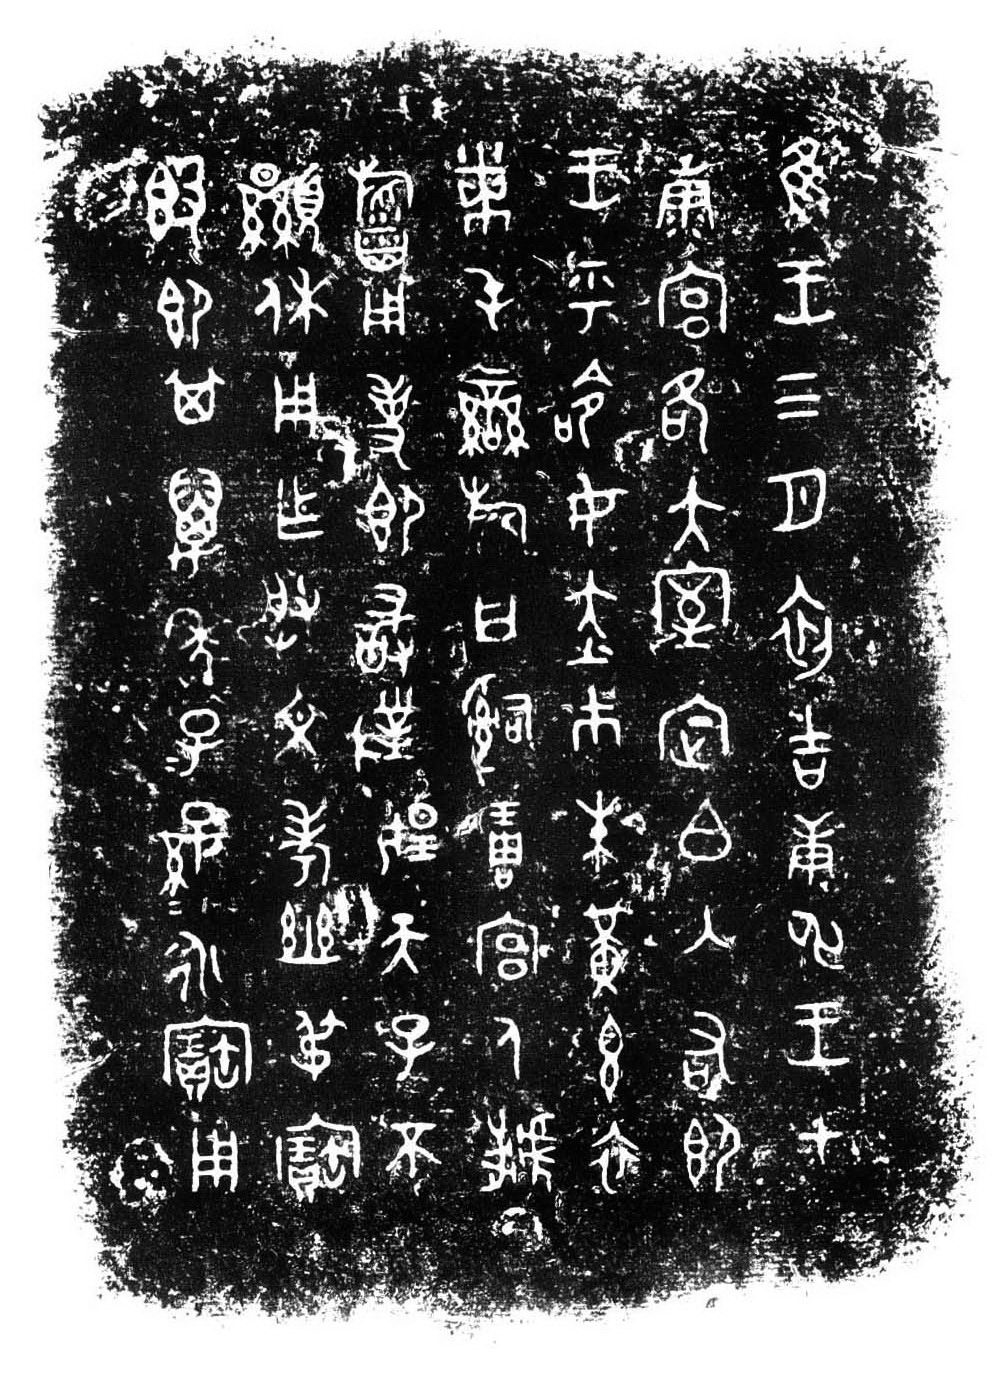 隹王三月初吉庚申王才
康宮各大室定白入右即
王乎命女赤巿朱黃玄衣
黹屯䜌旂曰嗣琱宮人虩
用事即敢對揚天子不
顯休用乍朕文考幽弔寶
簋即其萬年子=孫=永寶用